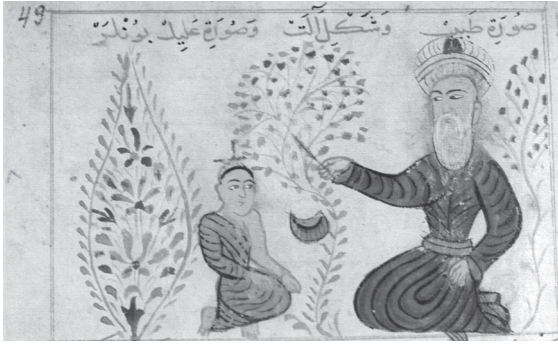 49
صُورَةِ طَبِيبْ وَشَكْلِ آلَتْ وَصُورَةِ عَلِيلْ بُونْلَرْدِرْ